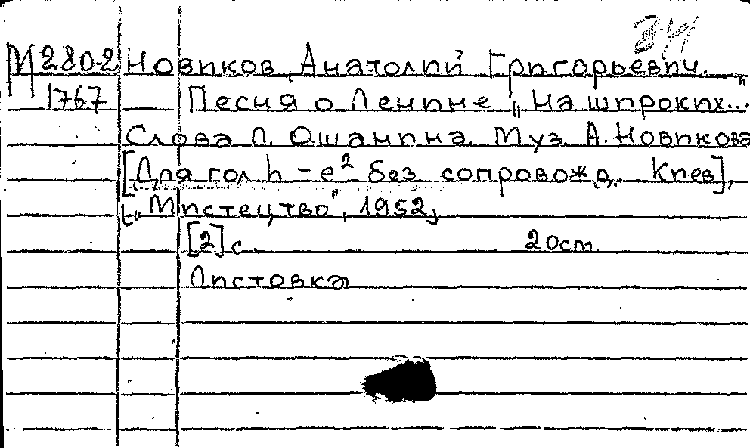 М2802 Новиков Анатолий Григорьевич.
1767 Песня о Ленине „На широких..."
Слова Л. Ошанина. Муз. А. Новикова
[Для гол h - e² без сопровожд. Киев],
[„Мистецтво", 1952]
[2] с 20 см
Листовка